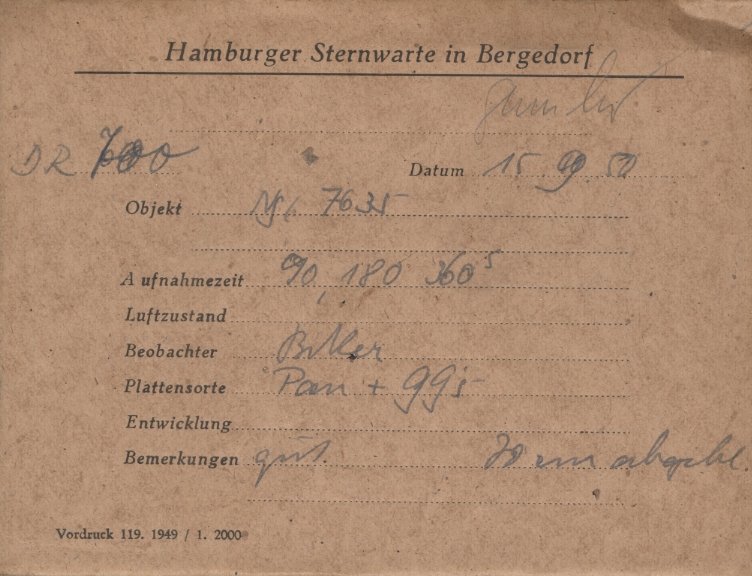 Hamburger Sternwarte in Bergedorf
DR 700
Datum 15. 9. 50
Objekt NGC 7635
Aufnahmezeit 90, 180 360 s
Luftzustand
Beobachter
Plattensorte Pan + GG5
Entwicklung
Bemerkungen gut.
Vordruck 119. 1949 / 1. 2000